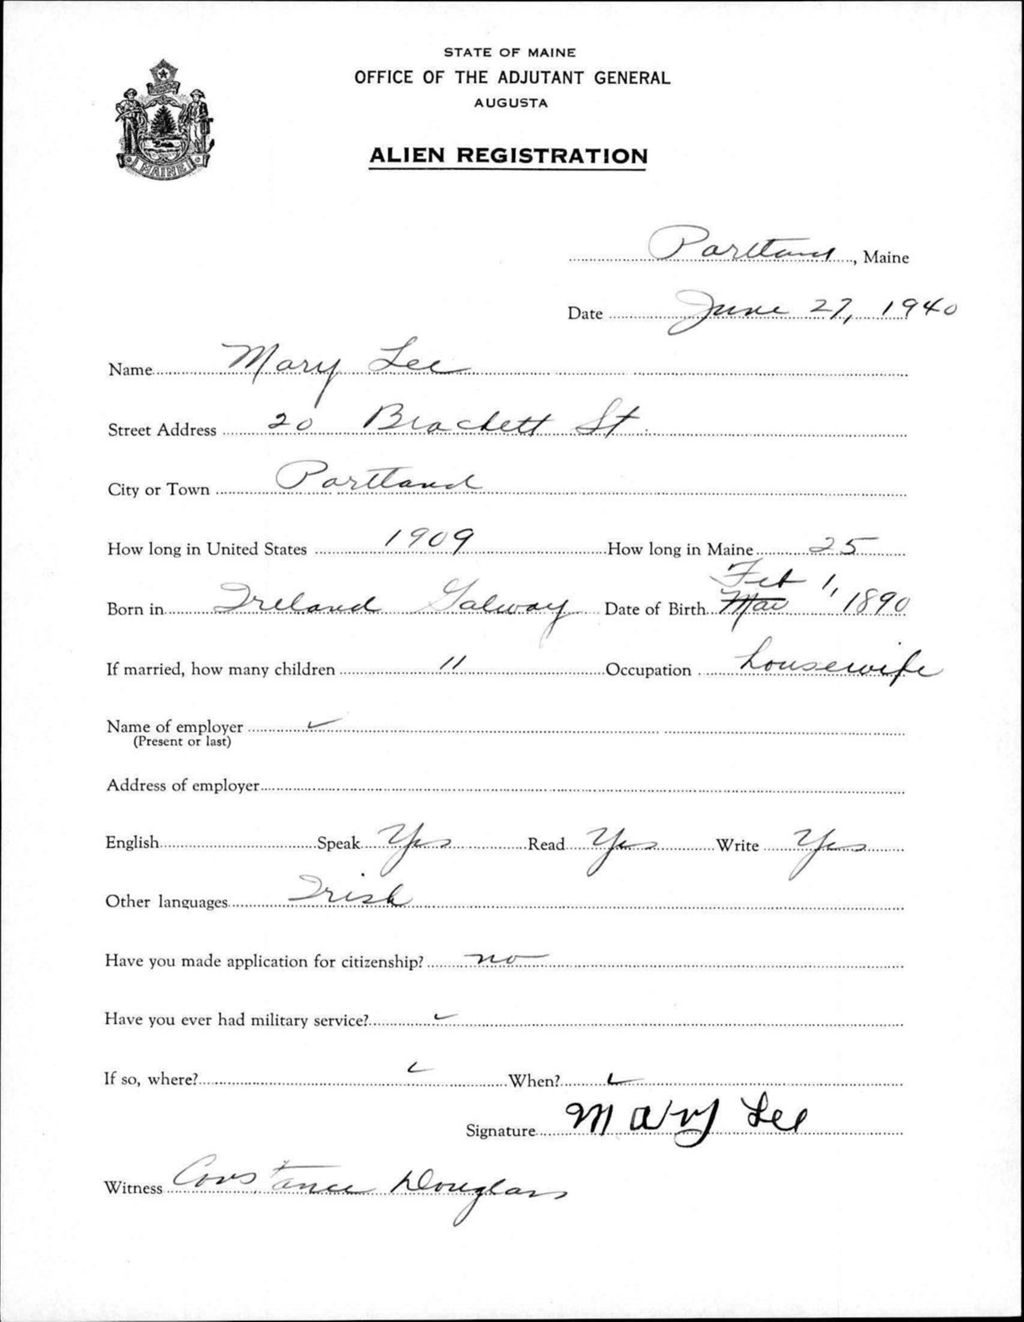 STATE OF MAINE
OFFICE OF THE ADJUTANT GENERAL
AUGUSTA
ALIEN REGISTRATION
MAINE
Portland, Maine
Date June 27, 1940
Name Mary Lee
Street Address 20 Brackett St.
City or Town Portland
How long in United States 1909 How long in Maine 25
Feb 1,
Born in Ireland Galway Date of Birth Mar 1890
If married, how many children 11 Occupation housewife
Name of employer ✓
(Present or last)
Address of employer
English Speak Yes Read Yes Write Yes
Other languages Irish
Have you made application for citizenship? no
Have you ever had military service? ✓
If so, where? ✓ When? ✓
Signature Mary Lee
Witness Constance Douglass